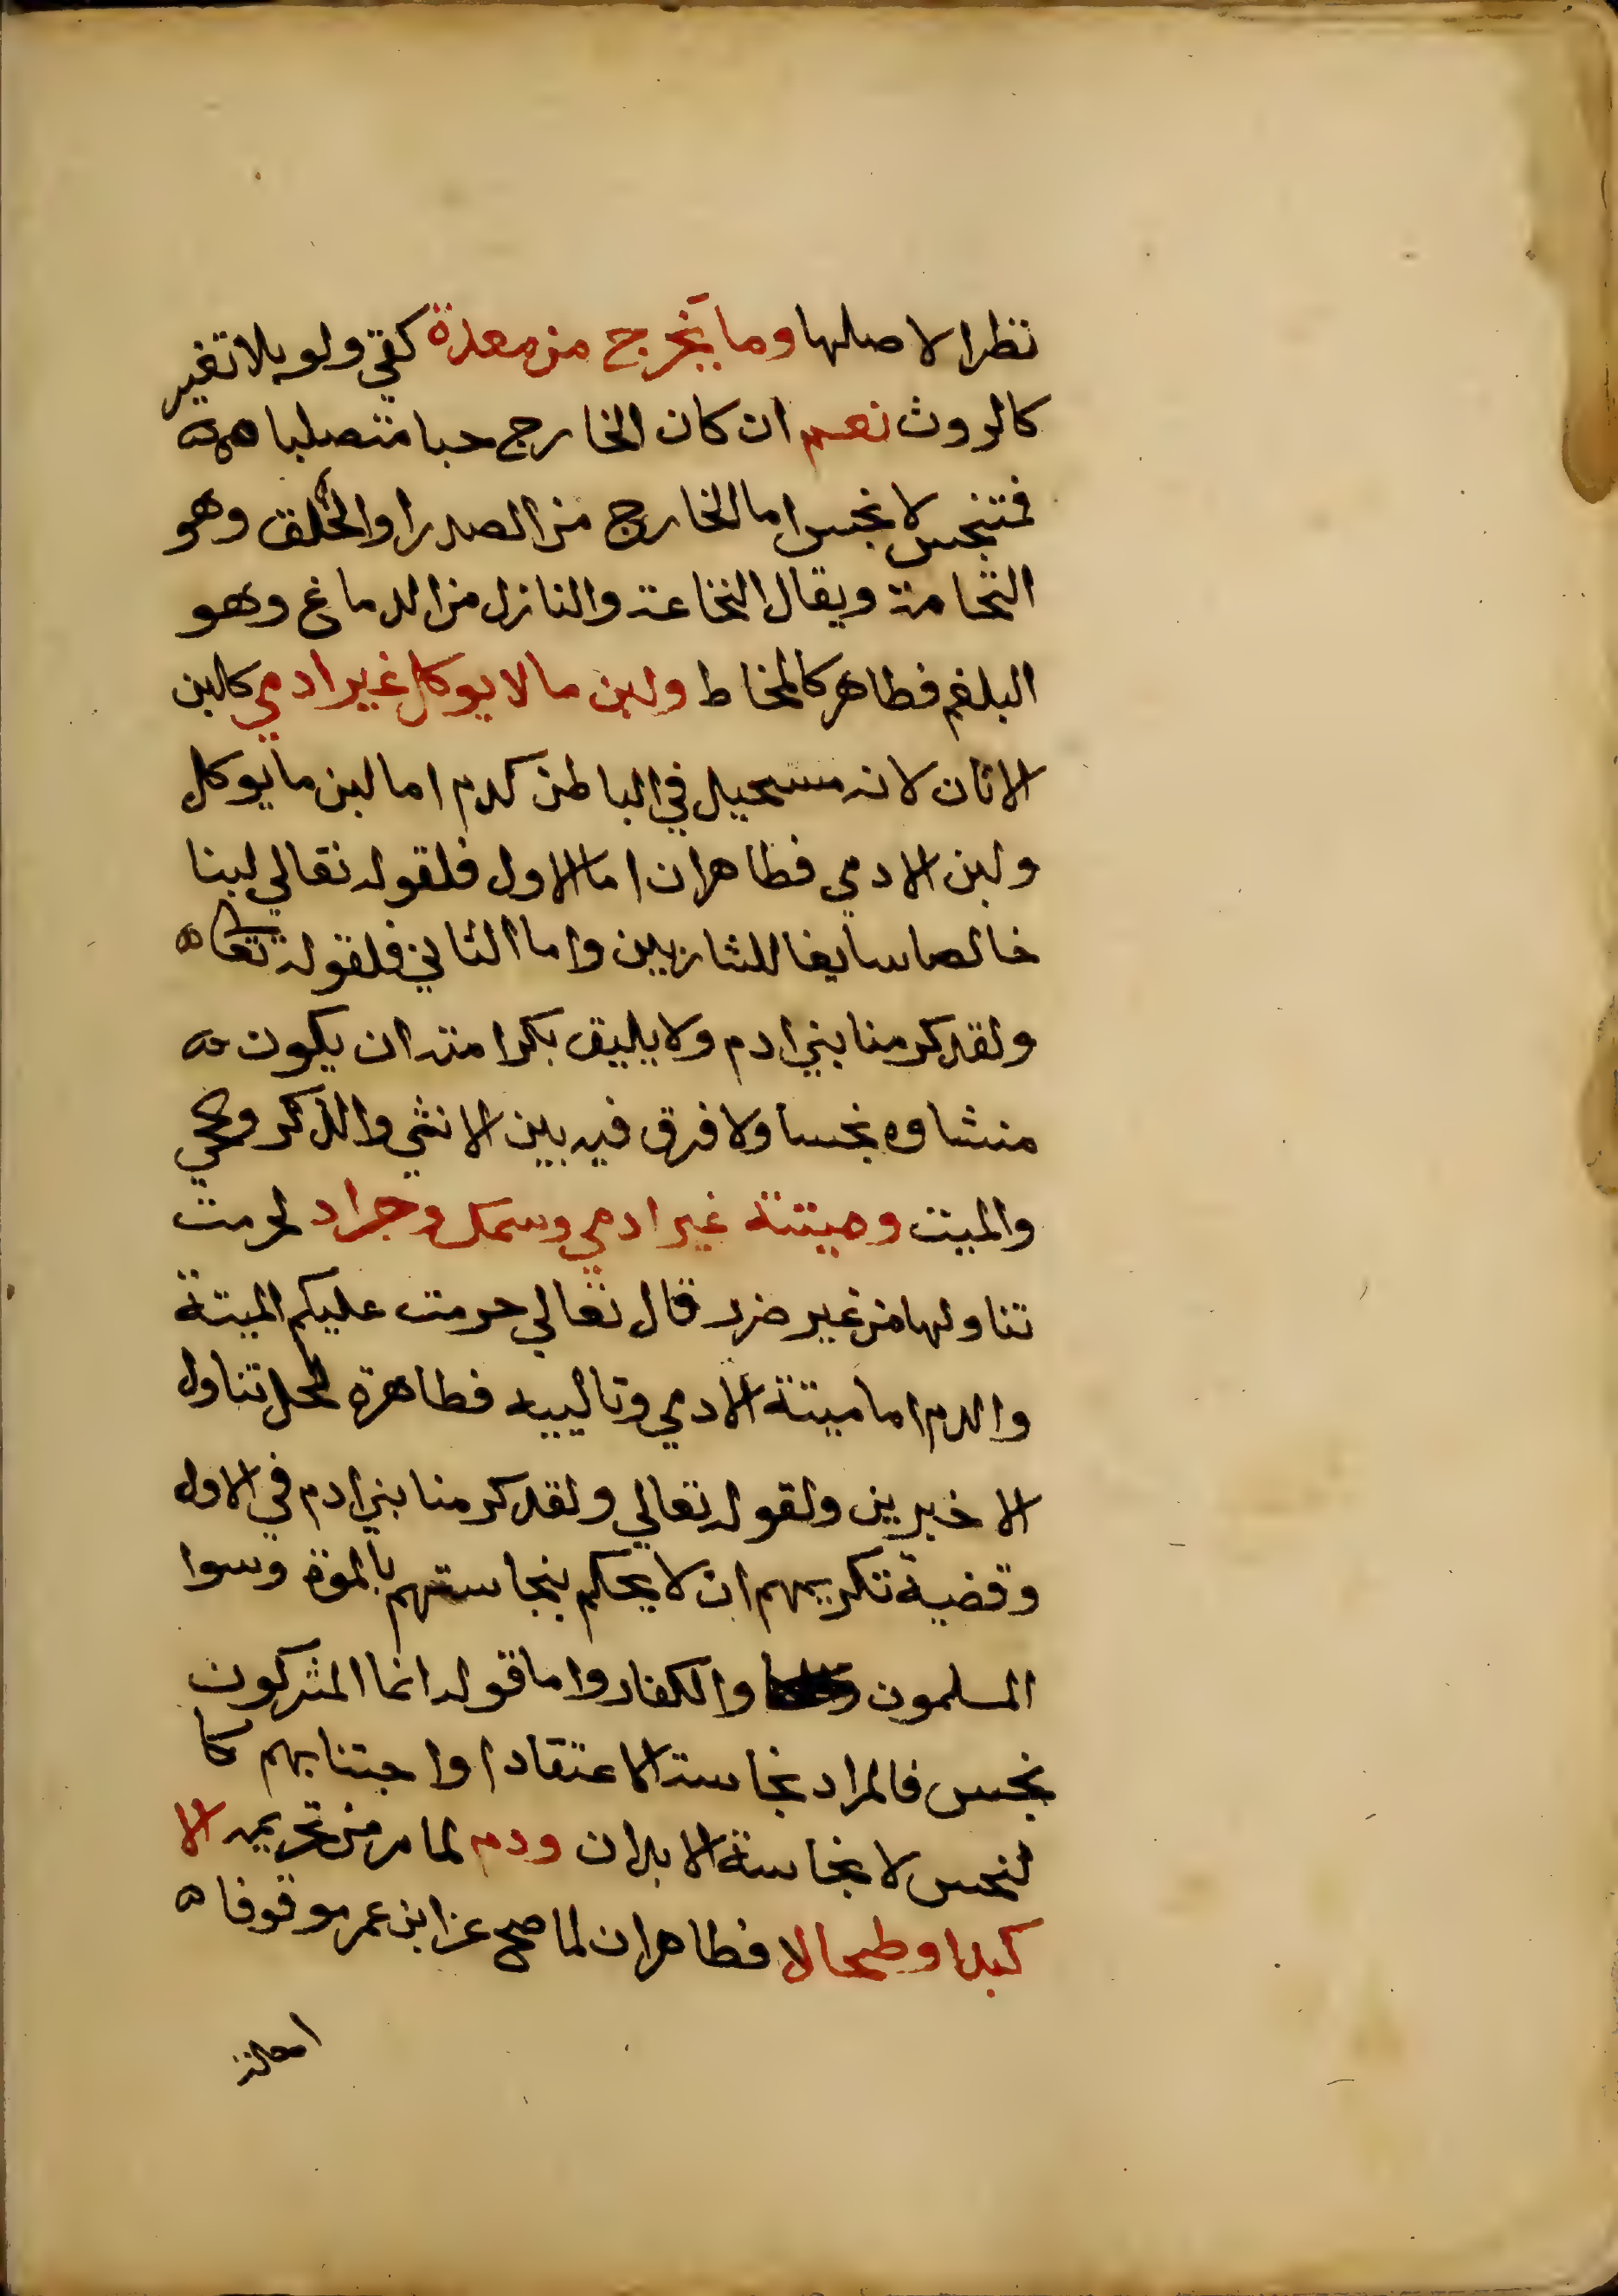 نظرا لاصلها وما يخرج من معدة كقي ولو بلا تغير
كالروث نعم ان كان الخارج حبا متصلبا
فمتنجس لا نجس اما الخارج من الصدر او الحلق وهو
النخامة ويقال النخاعة والنازل من الدماغ وهو
البلغم فطاهر كالمخاط ولبن مالا يوكل غير ادمي كلبن
الاتان لانه مستحيل في الباطن كدم اما لبن ما يوكل
ولبن الادمي فطاهران اما الاول فلقوله تعالي لبنا
خالصا سايغا للشاربين واما الثاني فلقوله تعا
ولقد كرمنا بني ادم ولا يليق بكرامته ان يكون
منشاوه نجسا ولا فرق فيه بين الانثي والذكر والحي
والميت وميتتة غير ادمي وسمك وجراد لحرمت
تناولها من غير ضرر قال تعالي حرمت عليكم الميتة
والدم اما ميتة الادمي وتالييه فطاهرة لحل تناول
الاخيرين ولقوله تعالي ولقد كرمنا بني ادم في الاول
وقضية تكريمهم ان لا يحكم بنجاستهم بالموة وسوا
المسلمون والكفار واما قوله انما المشركون
نجس فالمراد نجاسة الاعتقاد او اجتنابهم كا
لنجس لا نجاسة الابدان ودم لما مر من تحريمه الا
كبدا وطحالا فطاهران لما صح عن ابن عمر موقوفا